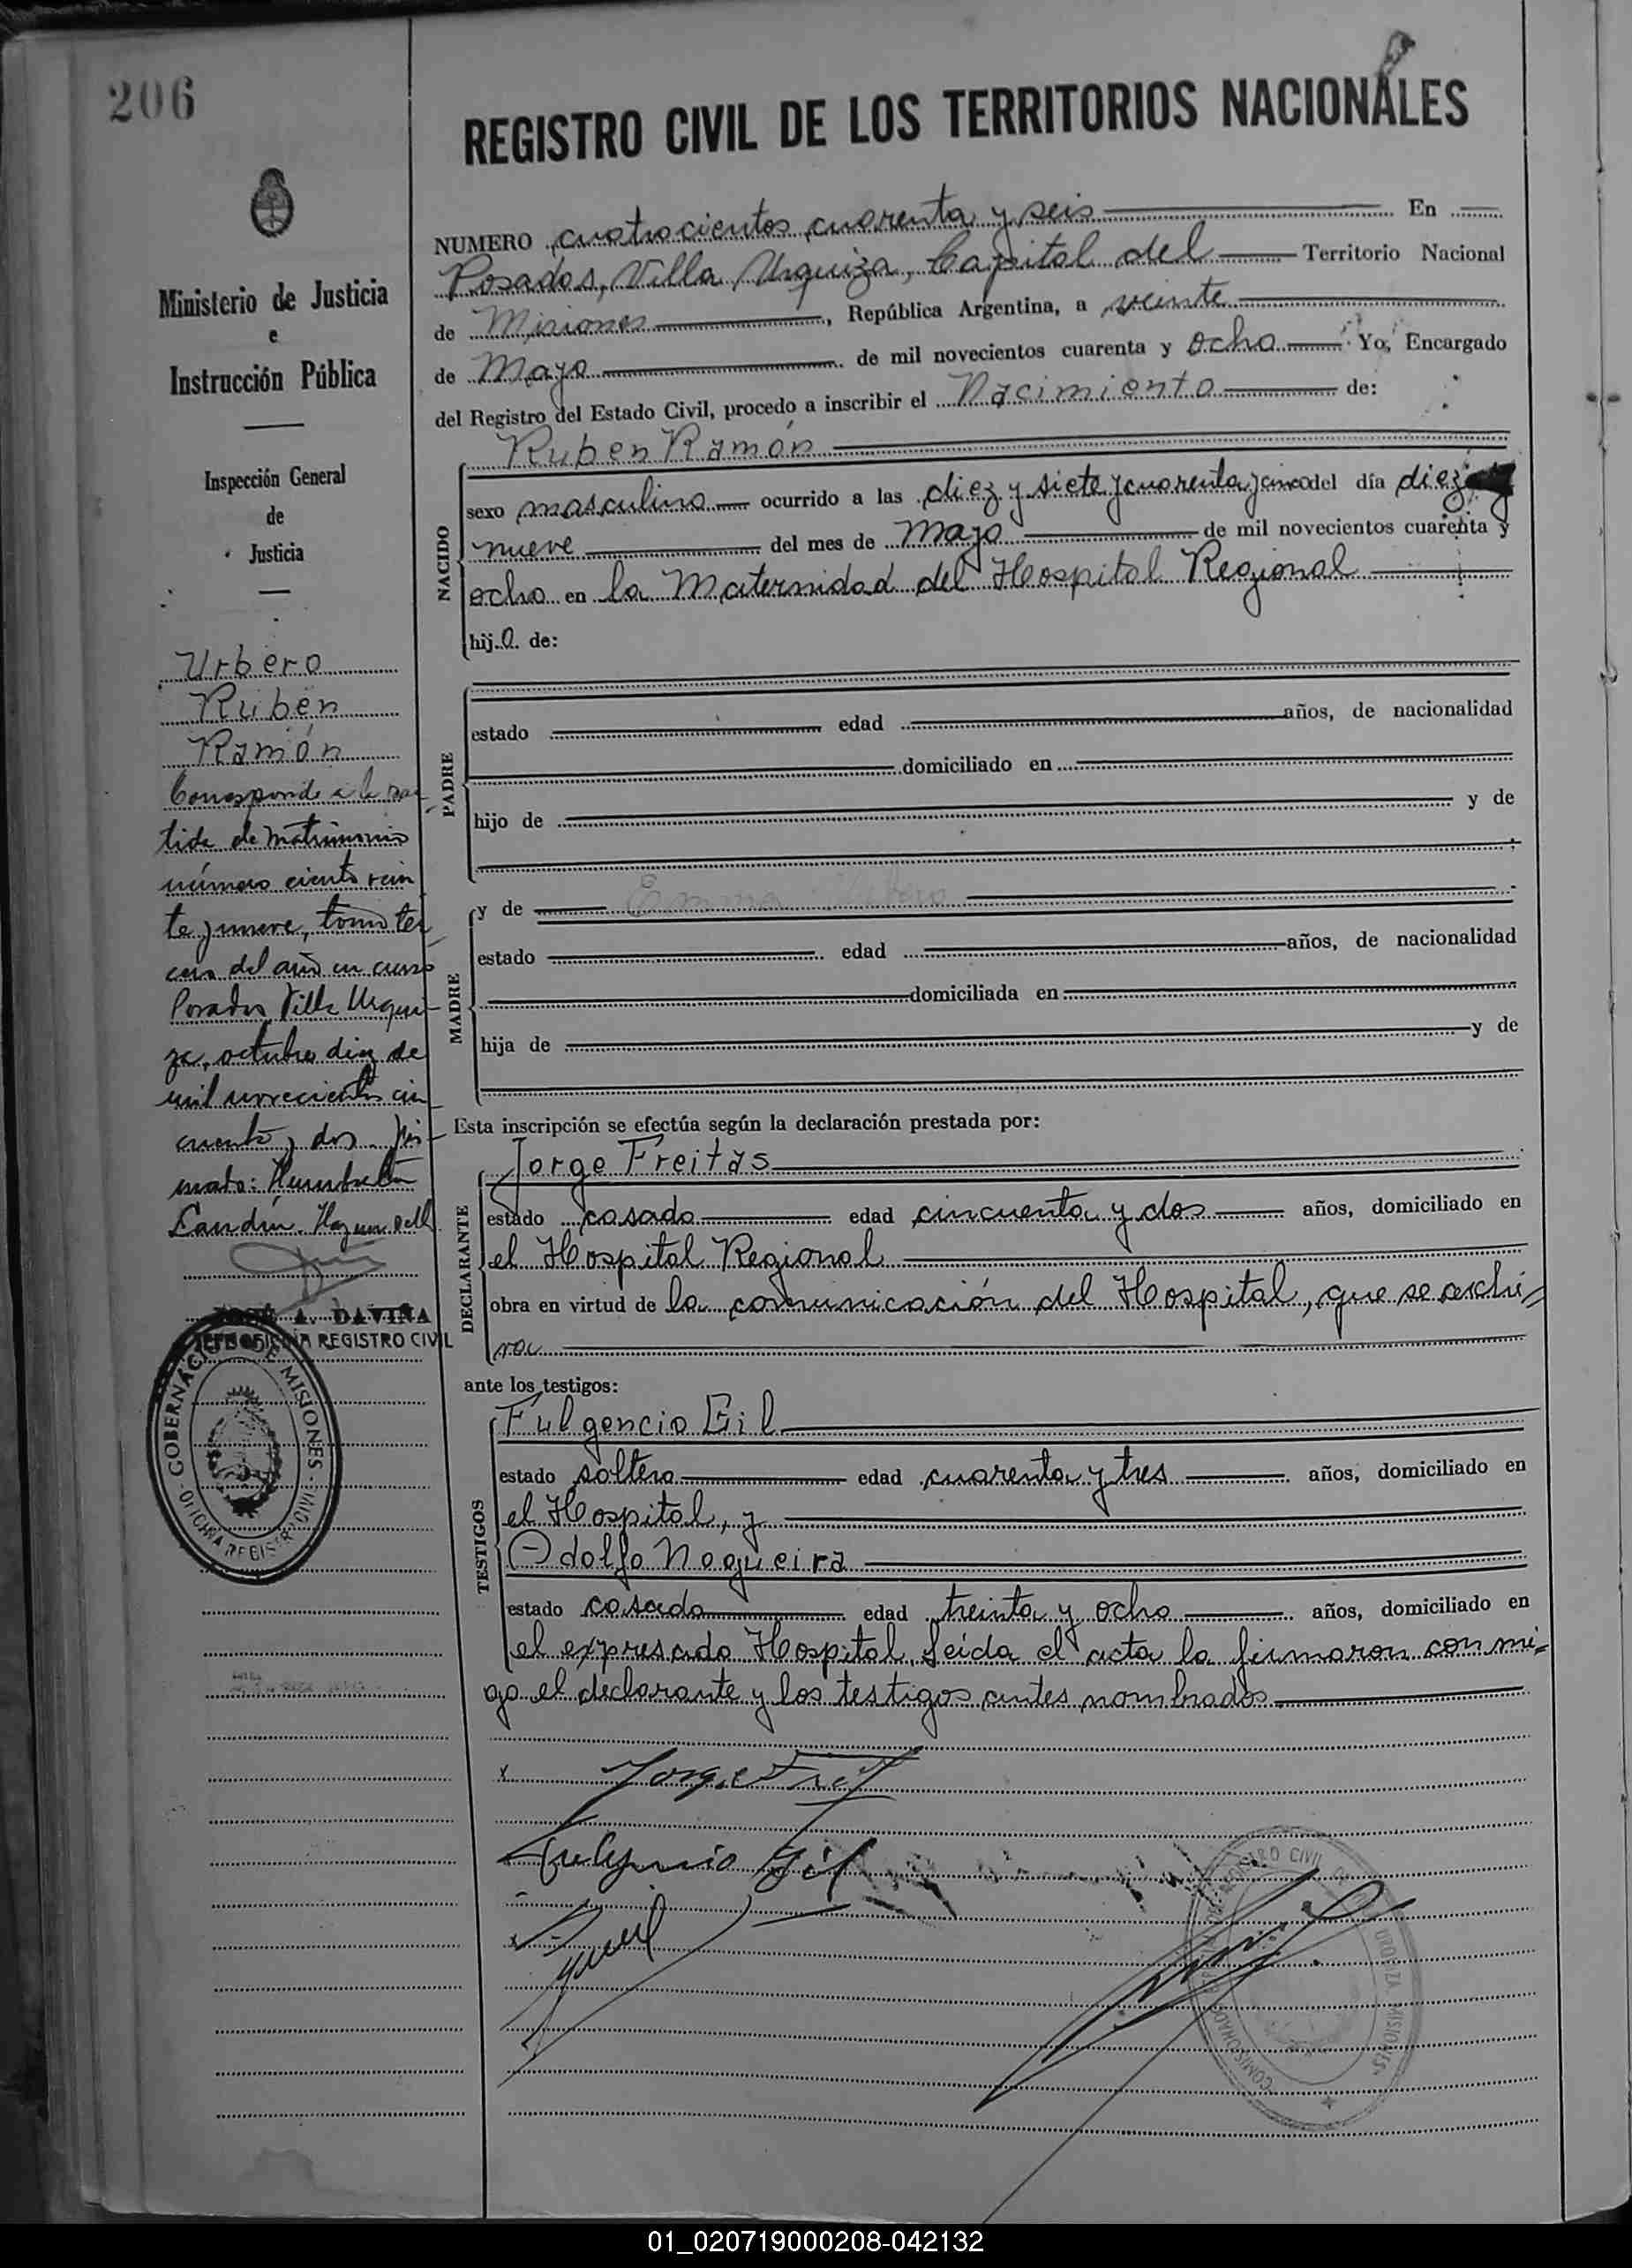 206
REGISTRO CIVIL DE LOS TERRITORIOS NACIONALES
NUMERO cuatrocientos cuarenta y seis En
Posadas, Villa Urquiza, Capital del Territorio Nacional
de Misiones, República Argentina, a veinte
de Mayo de mil novecientos cuarenta y ocho Yo, Encargado
del Registro del Estado Civil, procedo a inscribir el Nacimiento de:
Ruben Ramón
NACIDO
sexo masculino ocurrido a las diez y siete y cuarenta y cinco del día diez y
nueve del mes de Mayo de mil novecientos cuarenta y
ocho en la Maternidad del Hospital Regional
hijo de:
PADRE
estado edad años, de nacionalidad
domiciliado en
hijo de y de
MADRE
y de Emma Urbero
estado edad años, de nacionalidad
domiciliada en
hija de y de
Esta inscripción se efectúa según la declaración prestada por:
DECLARANTE
Jorge Freitas
estado casado edad cincuenta y dos años, domiciliado en
el Hospital Regional
obra en virtud de la comunicación del Hospital, que se archi=
va
ante los testigos:
TESTIGOS
Fulgencio Gil
estado soltero edad cuarenta y tres años, domiciliado en
el Hospital, y
Adolfo Nogueira
estado casado edad treinta y ocho años, domiciliado en
el expresado Hospital. Leida el acta la firmaron con mi=
go el declarante y los testigos antes nombrados
Jorge Freit
Fulgencio Gil
Ministerio de Justicia
e
Instrucción Pública
Inspección General
de
Justicia
Urbero
Ruben
Ramón
Corresponde a la par
tida de matrimonio
número ciento vein
te y nueve, tomo ter
cero del año en curso
Posadas Villa Urqui
za, octubre diez de
mil novecientos cin
cuenta y dos. Fir
mado: Humberto
Landin. Hay un sello
JOSÉ A. DAVIÑA
REGISTRO CIVIL
GOBERNACION DE MISIONES - OFICINA REGISTRO CIVIL
REGISTRO CIVIL URQUIZA MISIONES COMISIONADO
01_020719000208-042132